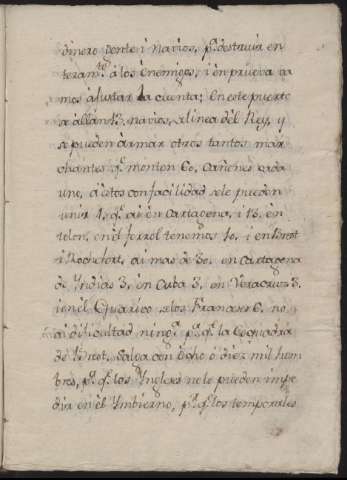 dinero Gente i Navios, p.ª destruir en
teram.te á los Enemigos, i en prueva va
mos á justar la cuenta; En este puerto
se allan 13. navios, de linea del Rey, y
se pueden armar otros tantos mar
chantes q.e monten 60. Cañones cada
uno, a estos con facilidad se le pueden
unir 1, q.e ai en Cartagena, i 13. en
tolon, en el ferrol tenemos 10, i en Brest
i Rochefort, ai mas de 30. en Cartagena
de Yndias 3, en Cuba 3, en Veracruz 3.
i en el Guarico, de los Franzeses 6. no
ai dificultad ning.a p.a q.e la Esquadra
de Brest, salga con ocho ó diez mil hom
bres, p.r q.e los Yngleses no le pueden impe
dir en el Ymbierno, p.r q.e los temporales